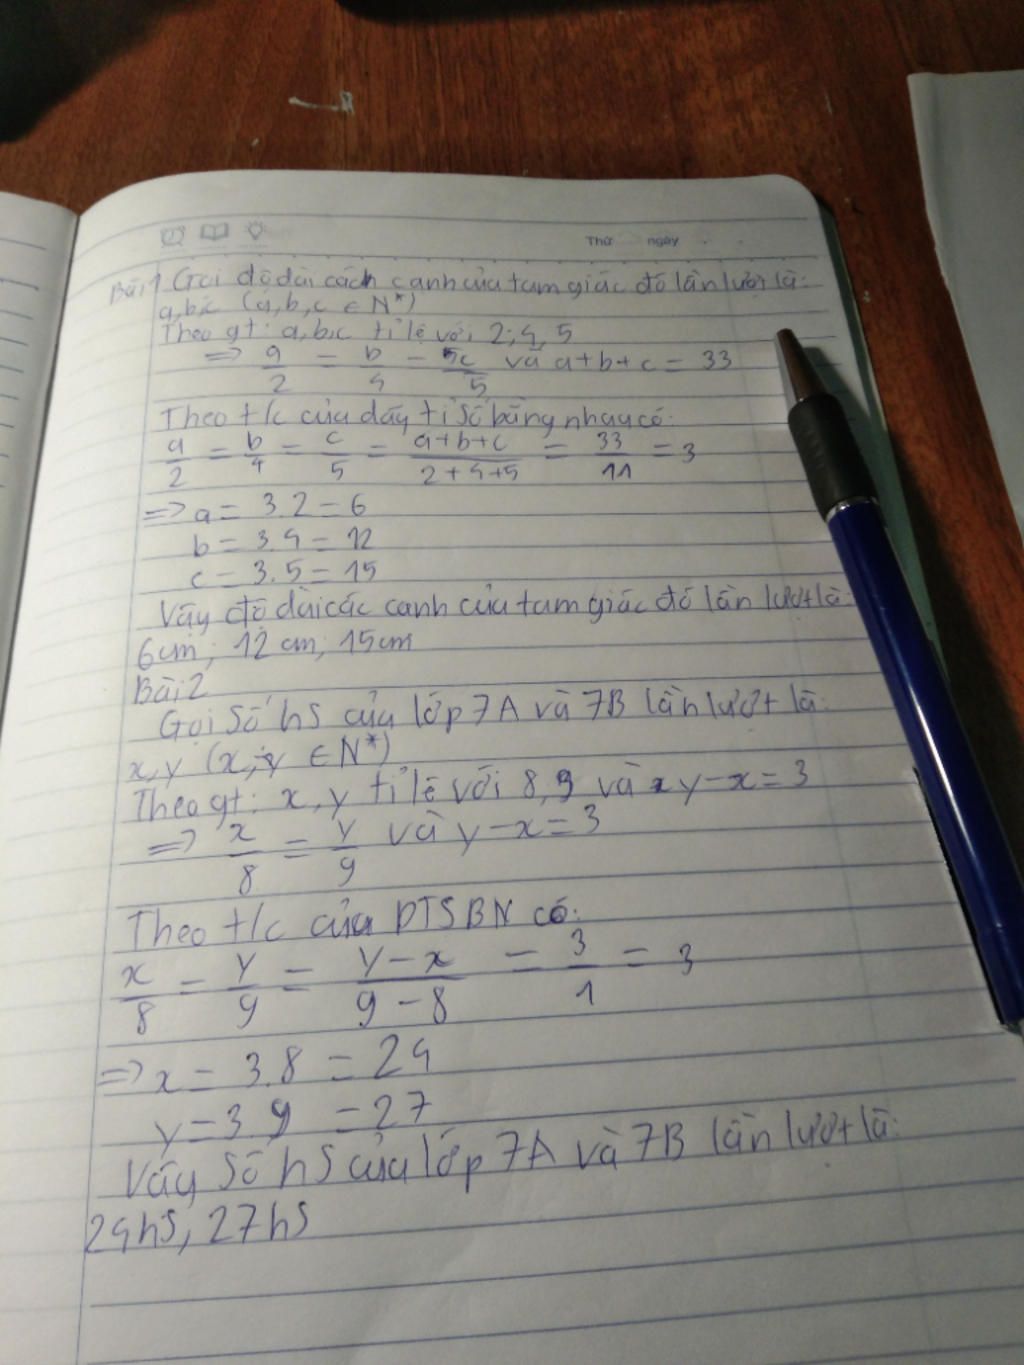 Thứ ngày
Bài 1 Gọi độ dài cách cạnh của tam giác đó lần lượt là:
a,b,c (a,b,c ∈ N*)
Theo gt: a,b,c tỉ lệ với 2; 4, 5
=> a/2 = b/4 = 5c/5 và a+b+c = 33
Theo t/c của dãy tỉ số bằng nhau có:
a/2 = b/4 = c/5 = a+b+c/2+4+5 = 33/11 = 3
=> a = 3.2 = 6
b = 3.4 = 12
c = 3.5 = 15
Vậy độ dài các cạnh của tam giác đó lần lượt là:
6cm; 12 cm; 15cm
Bài 2
Gọi số hs của lớp 7A và 7B lần lượt là:
x,y (x,y ∈ N*)
Theo gt: x, y tỉ lệ với 8, 9 và y-x = 3
=> x/8 = y/9 và y-x = 3
Theo t/c của DTSBN có:
x/8 = y/9 = y-x/9-8 = 3/1 = 3
=> x = 3.8 = 24
y = 3.9 = 27
Vậy số hs của lớp 7A và 7B lần lượt là:
24hs, 27hs